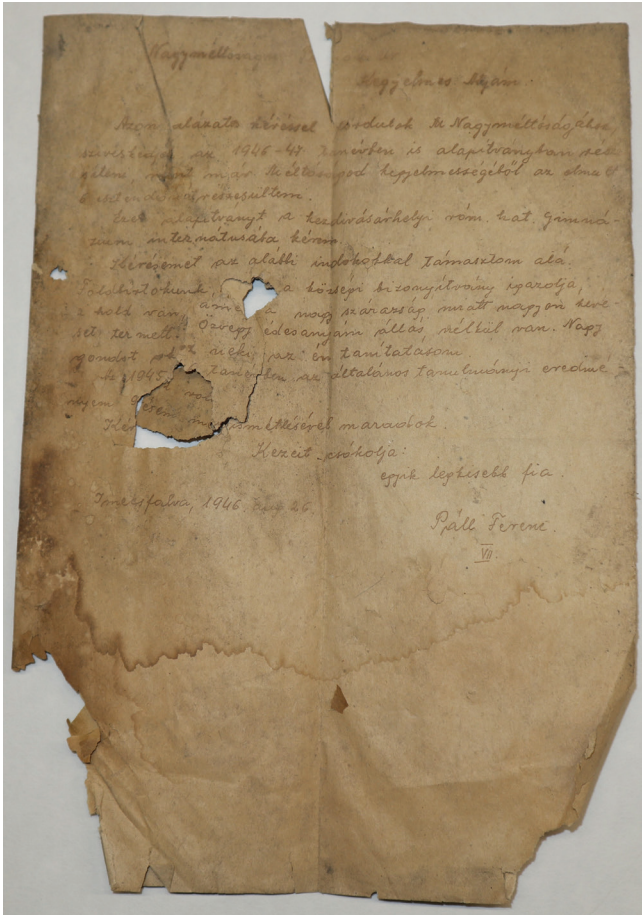 Nagyméltóságú
Kegyelmes Uram
Azon alázatos kéréssel fordulok Nagyméltóságához,
az 1946-47 tanévben is alapítványban
mint már Méltóságod kegyelmességéből az elmult
esztendőben részesültem.
Ezen alapítványt a kezdivásárhelyi róm. kat. Gimná-
zium internátusába kérem.
Kérésemet az alábbi indokokkal támasztom alá.
Földbirtokunk a községi bizonyítvány igazolja,
hold van, a nagy szárazság miatt nagyon keve-
set termett. Özvegy édesanyám állás nélkül van. Nagy
gondot neki az én taníttatásom
Az 1945 tanévben az általános tanulmányi eredmé-
nyem
megismétlésével maradok.
Kezeit csókolja:
egyik legkisebb fia.
Imecsfalva, 1946. aug 26.
Páll Ferenc.
VII.